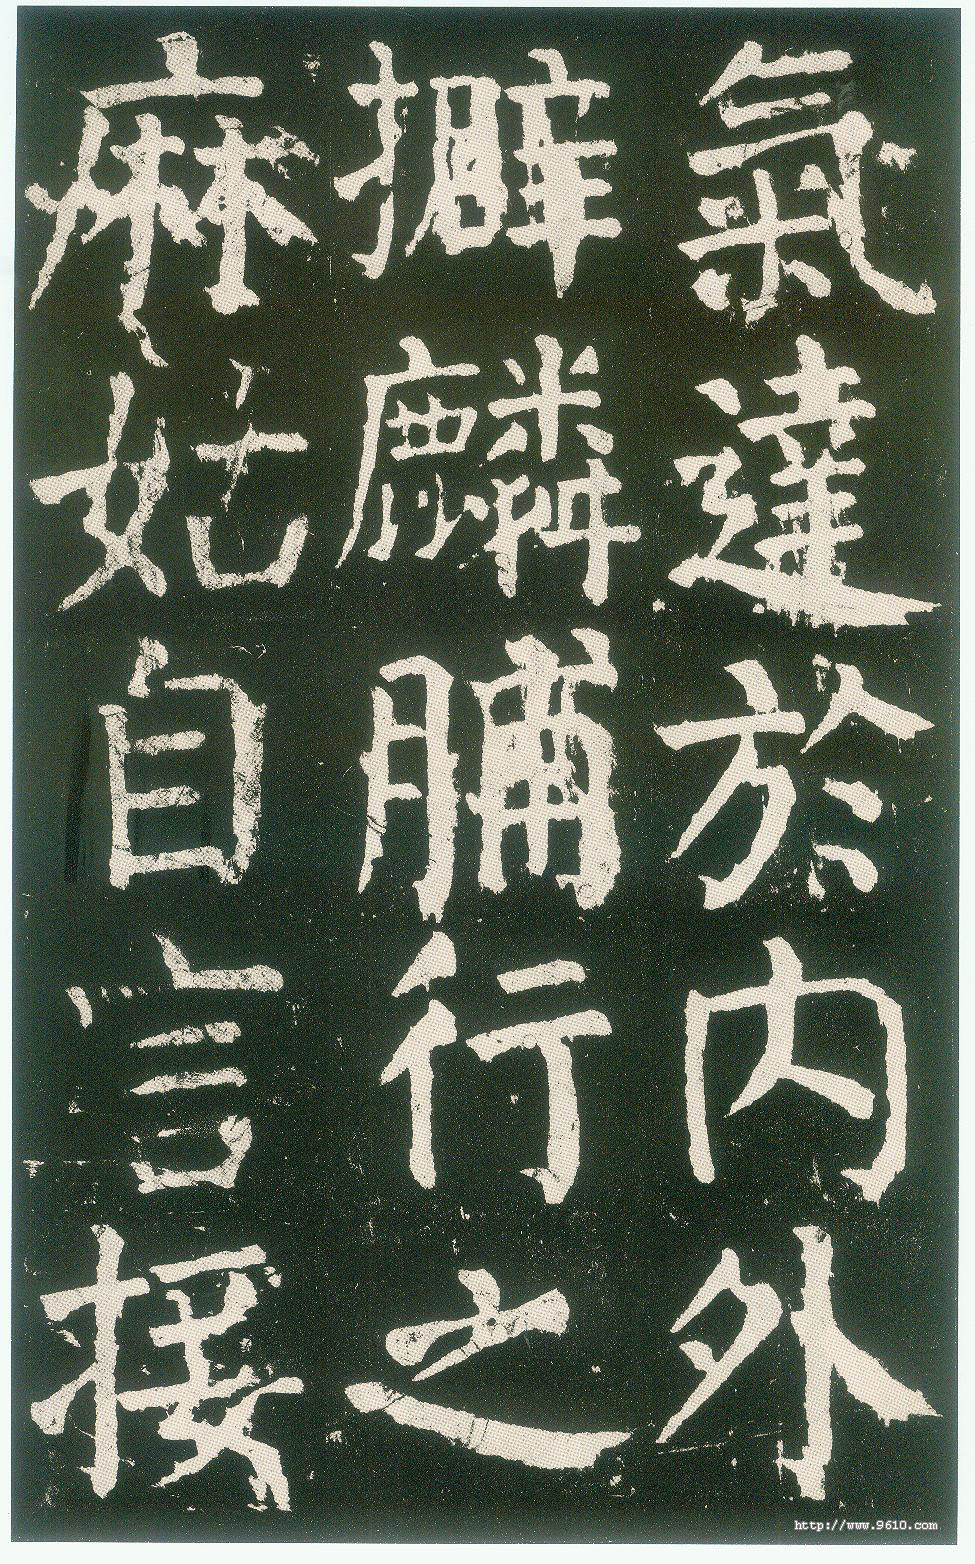 氣達於内外
擗麟脯行之
麻姑自言接
http://www.9610.com